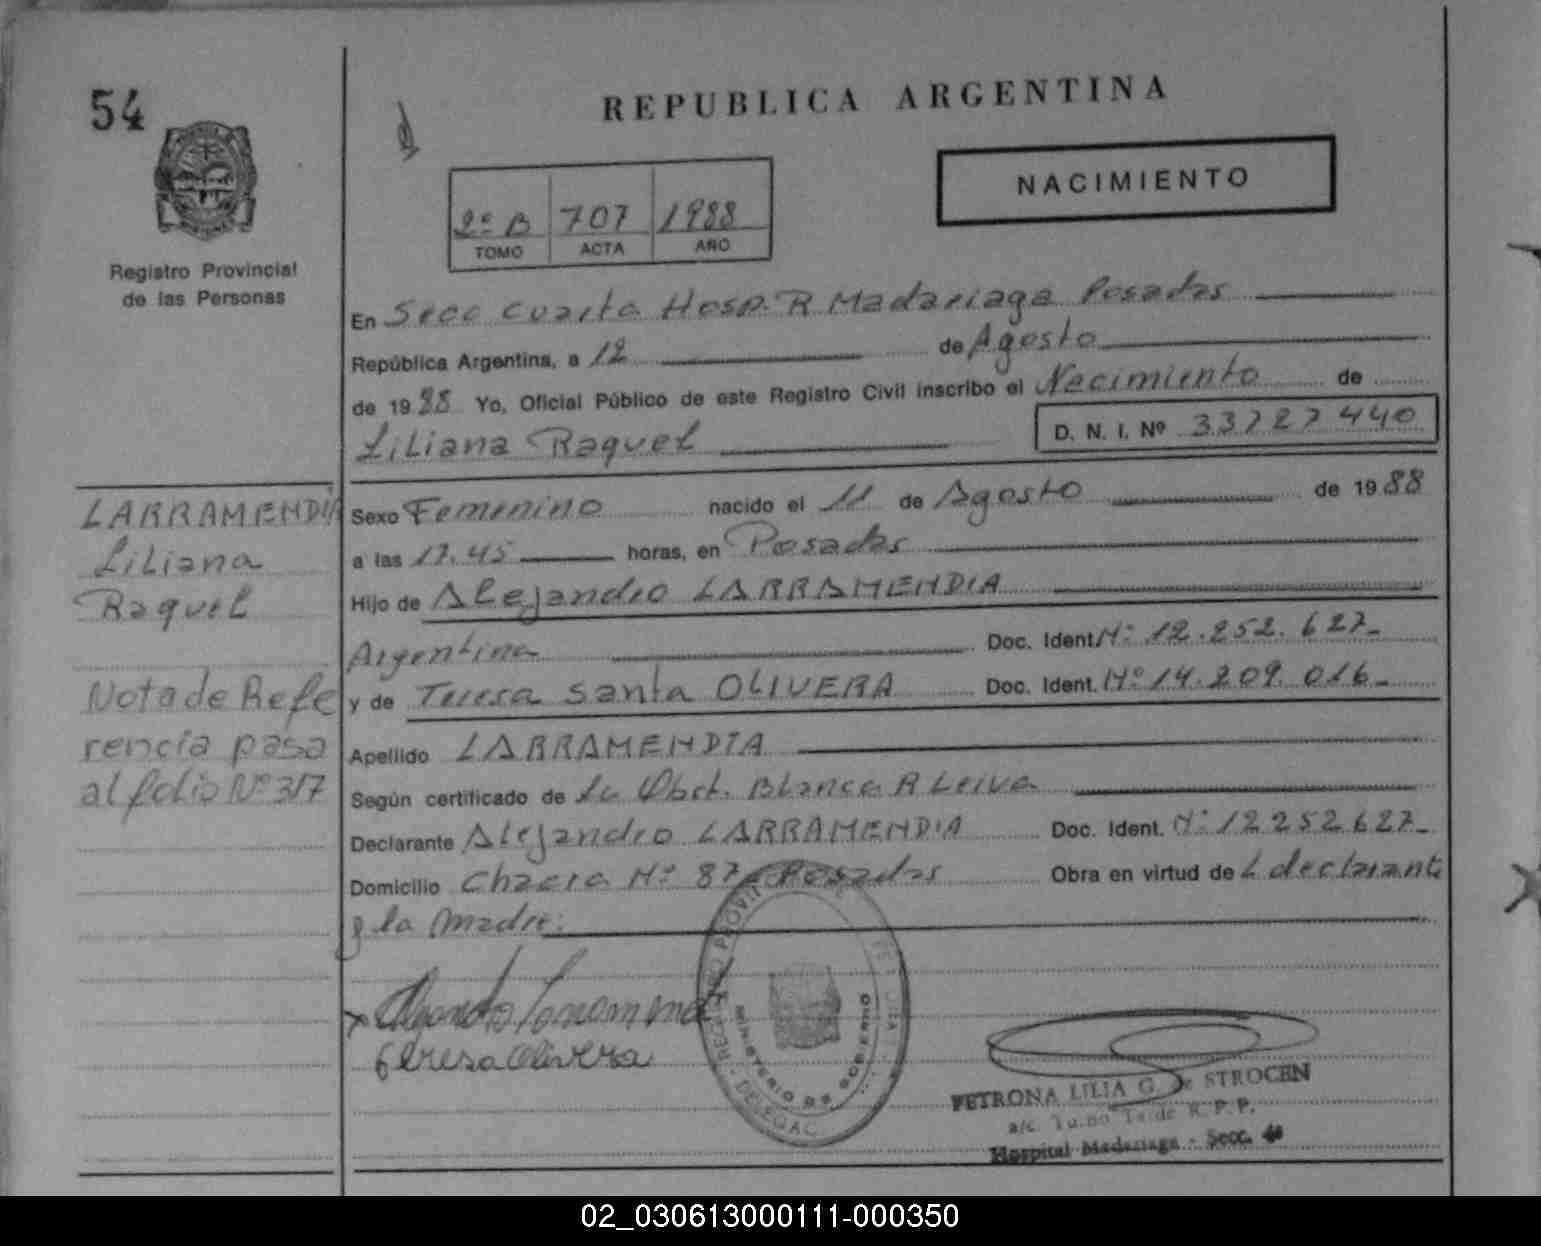 54
REPUBLICA ARGENTINA
NACIMIENTO
2º B 707 1988
TOMO ACTA AÑO
Registro Provincial
de las Personas
En Secc Cuarta Hosp. R Madariaga Posadas
República Argentina, a 12 de Agosto
de 1988 Yo, Oficial Público de este Registro Civil inscribo el Nacimiento de
Liliana Raquel D. N. I. Nº 33727440
LARRAMENDIA
Liliana
Raquel
Nota de Refe
rencia pasa
al folio Nº 317
Sexo Femenino nacido el 11 de Agosto de 1988
a las 17.45 horas, en Posadas
Hijo de Alejandro LARRAMENDIA
Argentina Doc. Ident. Nº 12.252.627
y de Teresa Santa OLIVERA Doc. Ident. Nº 14.209.016
Apellido LARRAMENDIA
Según certificado de la Obst. Blanca R Leiva
Declarante Alejandro LARRAMENDIA Doc. Ident. Nº 12252627
Domicilio Chacra Nº 87 Posadas Obra en virtud de L declarante
y la Madre.
Teresa Olivera
MINISTERIO DE GOBIERNO
PETRONA LILIA G. de STROCEN
a/c. Turno Tarde R. P. P.
Hospital Madariaga - Secc. 4a
02_030613000111-000350